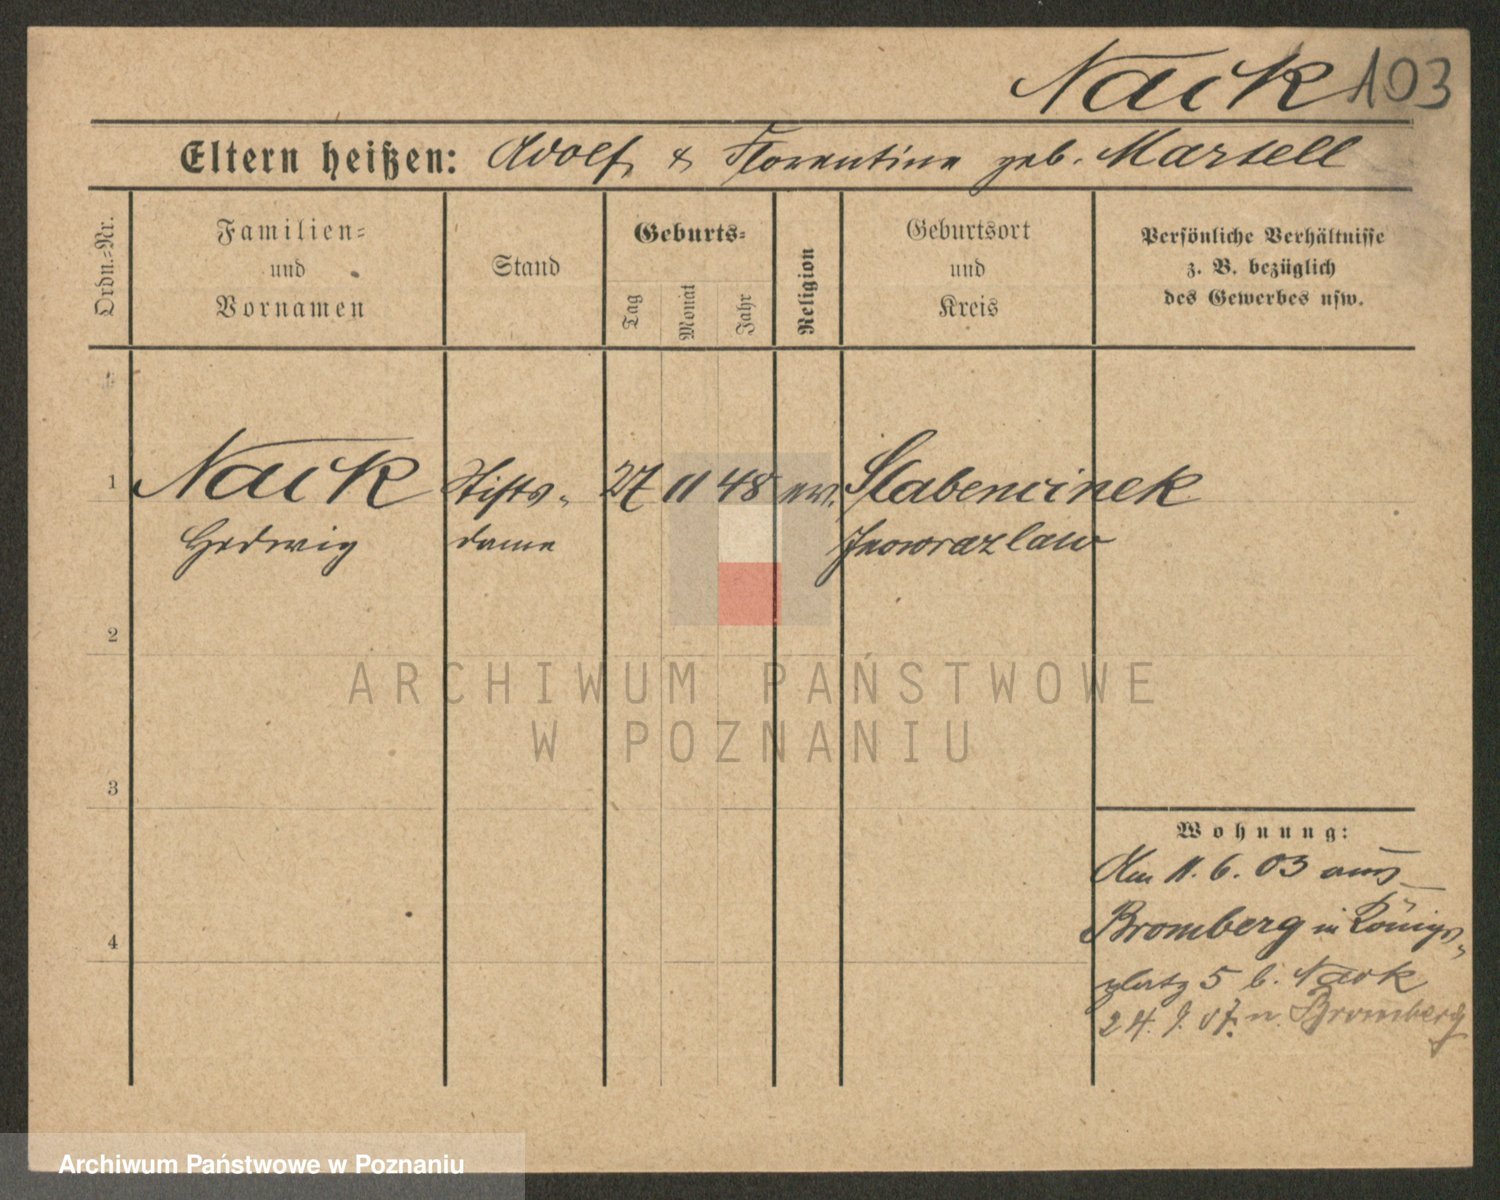 Nack 103
Eltern heißen: Adolf & Florentine geb. Martell
Ordn.-Nr.
Familien-
und
Vornamen
Stand
Geburts-
Tag
Monat
Jahr
Religion
Geburtsort
und
Kreis
Persönliche Verhältnisse
z. B. bezüglich
des Gewerbes usw.
1 Nack Stifts- 27 11 48 ev. Slabencinek
Hedwig dame Inowrazlaw
2
3
4
Wohnung:
Am 11. 6. 03 aus
Bromberg in Königs-
platz 5 b. Nack
24. 9. 07. n. Bromberg
ARCHIWUM PAŃSTWOWE
W POZNANIU
Archiwum Państwowe w Poznaniu